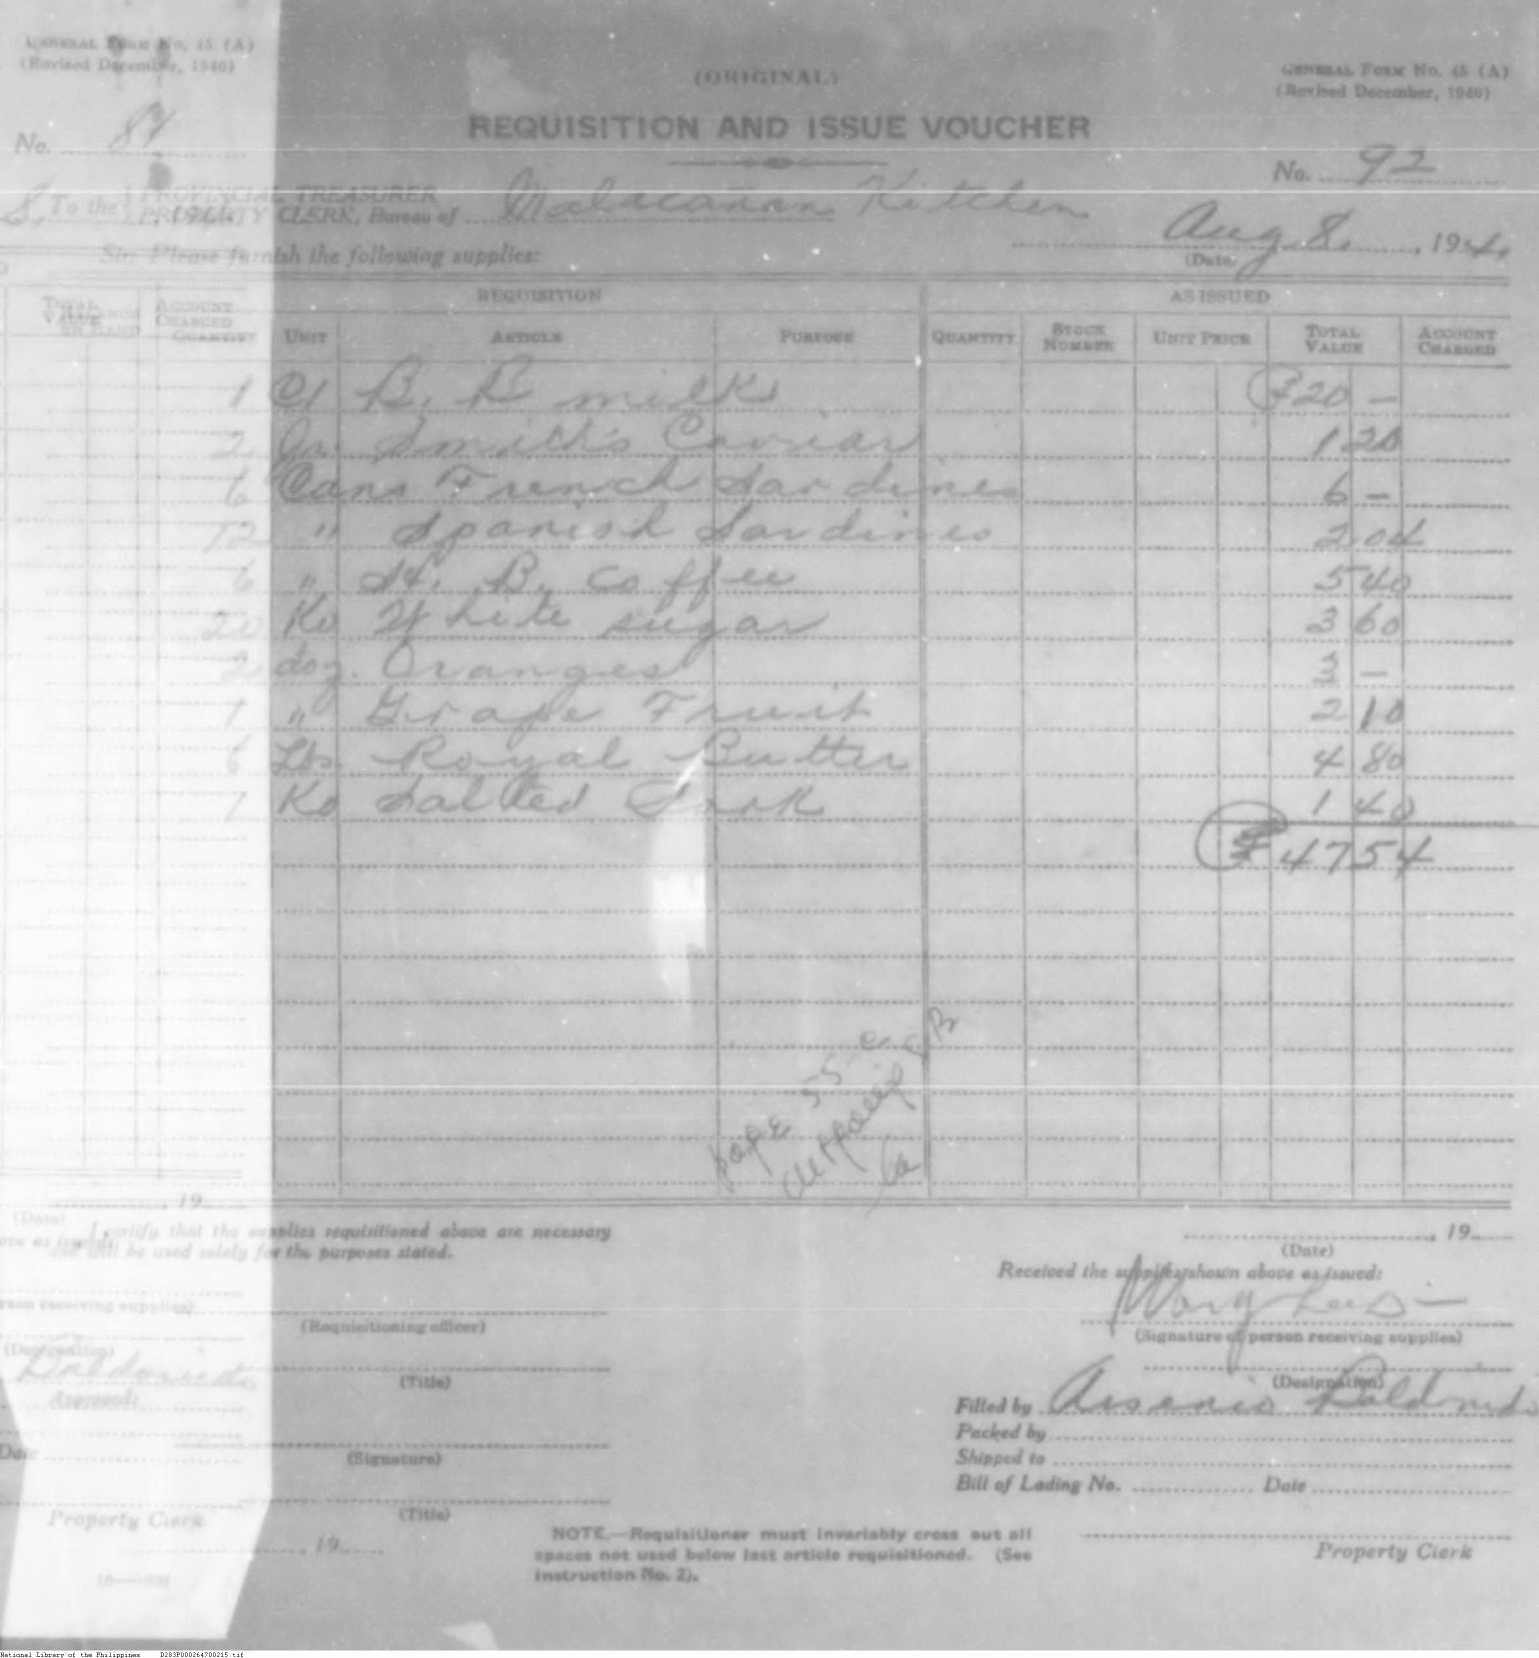 GENERAL FORM No. 45 (A)
(Revised December, 1940)
No. 84
(ORIGINAL)
REQUISITION AND ISSUE VOUCHER
GENERAL FORM No. 45 (A)
(Revised December, 1940)
No. 92
To the PROVINCIAL TREASURER
PROPERTY CLERK, Bureau of Malacañan Kitchen
Aug. 8, 194
(Date)
Sir: Please furnish the following supplies:
REQUISITION AS ISSUED
TOTAL VALUE ACCOUNT CHARGED
QUANTITY UNIT ARTICLE PURPOSE QUANTITY STOCK NUMBER UNIT PRICE TOTAL VALUE ACCOUNT CHARGED
1 B. B milk ₱20 —
2 Smith's Caviar 1 20
6 Cans French Sardines 6 —
12 " Spanish Sardines 2 04
6 " H. B. Coffee 5 40
20 Ko White sugar 3 60
2 doz. Oranges 3 —
1 " Grape Fruit 2 10
6 Lbs. Royal Butter 4 80
1 Ko Salted Pork 1 40
₱ 47 54
page 55
, 19
(Date)
I certify that the supplies requisitioned above are necessary
and will be used solely for the purposes stated.
(Requisitioning officer)
(Title)
Approved:
(Signature)
(Title)
, 19
, 19
(Date)
Received the supplies shown above as issued:
(Signature of person receiving supplies)
(Designation)
Filled by Arsenio Baldonido
Packed by
Shipped to
Bill of Lading No. Date
Property Clerk
(Designation)
Date
Property Clerk
NOTE.—Requisitioner must invariably cross out all
spaces not used below last article requisitioned. (See
instruction No. 2).
National Library of the Philippines D283P000264700215.tif